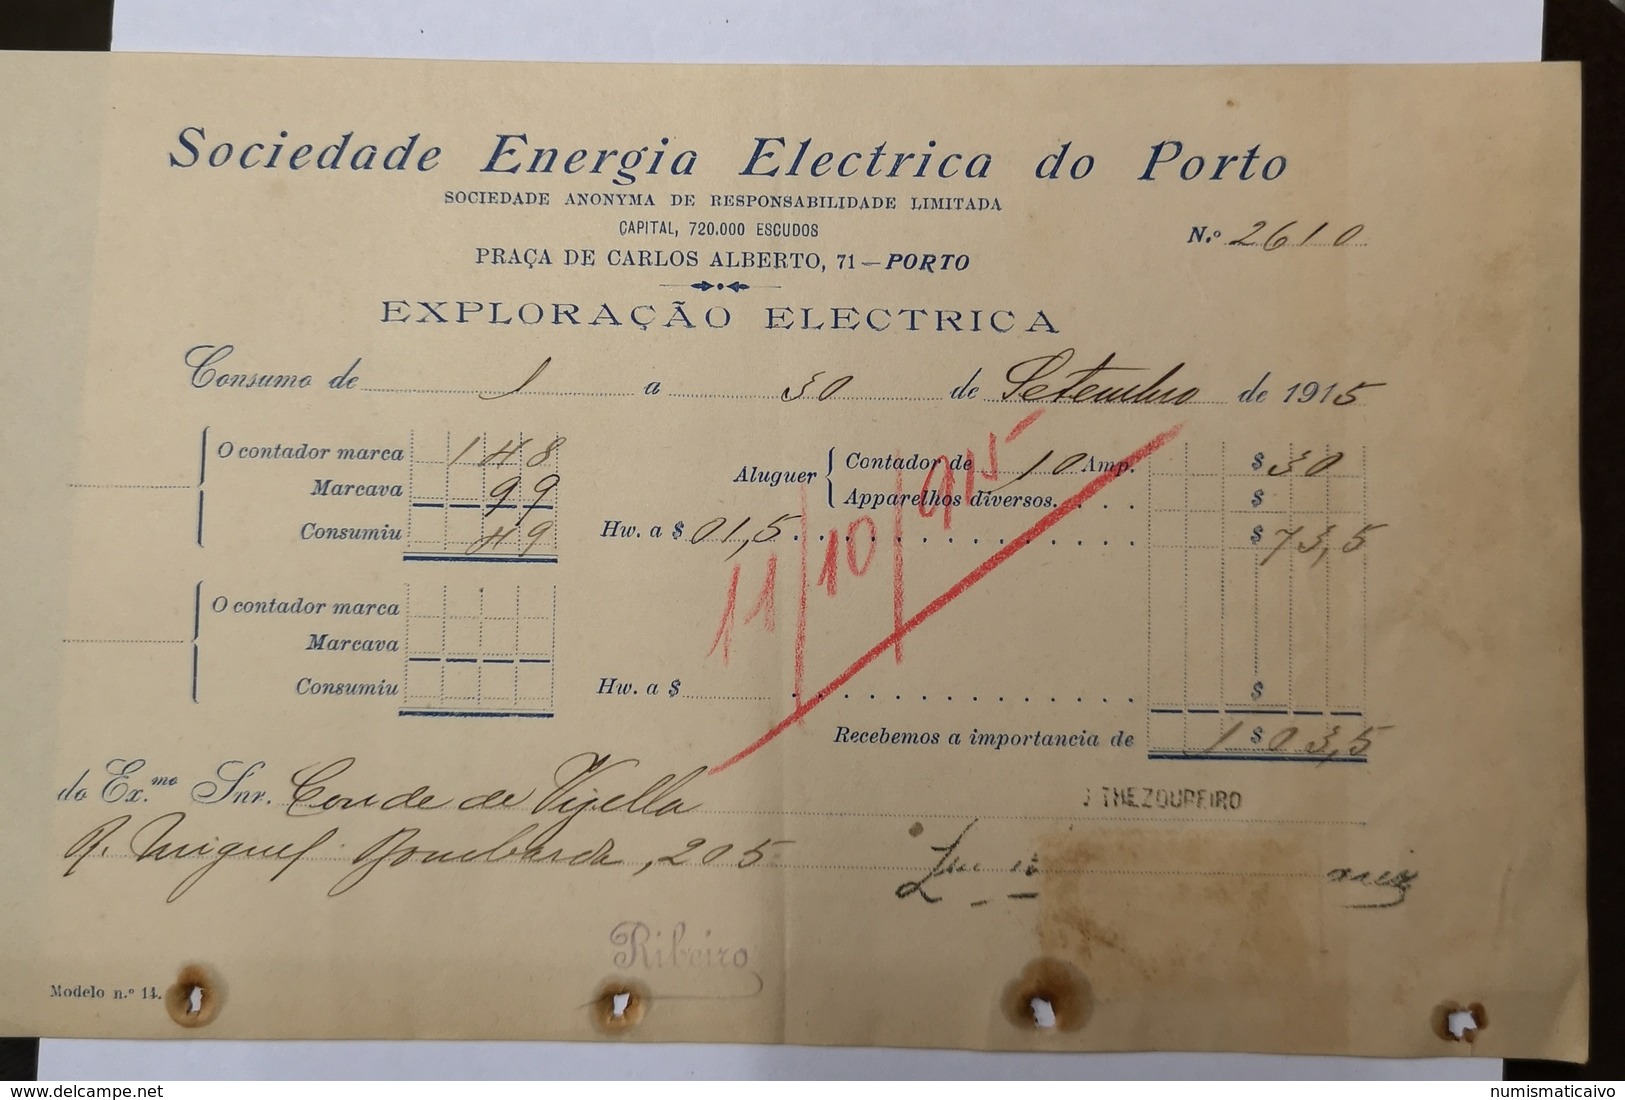 Sociedade Energia Electrica do Porto
SOCIEDADE ANONYMA DE RESPONSABILIDADE LIMITADA
CAPITAL, 720.000 ESCUDOS
N.º 2610
PRAÇA DE CARLOS ALBERTO, 71 — PORTO
EXPLORAÇÃO ELECTRICA
Consumo de 1 a 30 de Setembro de 1915
O contador marca 148
Marcava 99
Consumiu 49
Aluguer Contador de 10 Amp. $ 30
Apparelhos diversos. $
Hw. a $ 01,5 $ 73,5
11/10/915
O contador marca
Marcava
Consumiu
Hw. a $ $
Recebemos a importancia de 1 $ 03,5
do Ex.mo Snr. Conde de Vizella
THEZOUREIRO
R. Miguel Bombarda, 205
Ribeiro
Modelo n.º 14.
numismaticaivo
www.delcampe.net